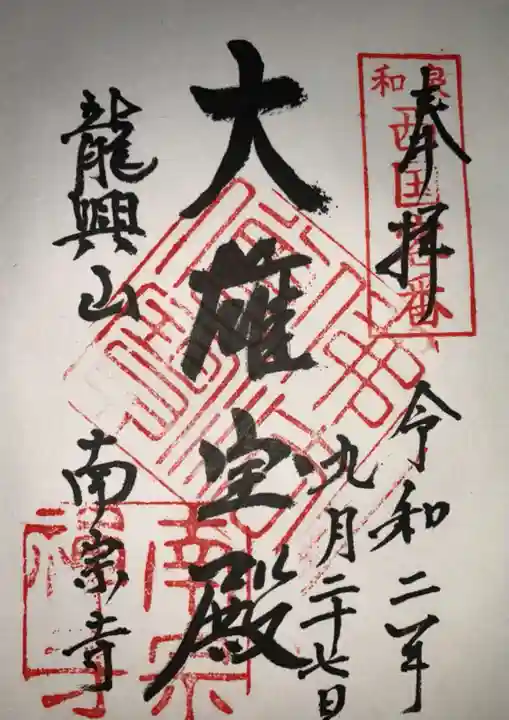 奉拝
和泉西国壱番
令和二年
九月二十七日
大雄宝殿
龍興山
南宗寺
南宗禅寺